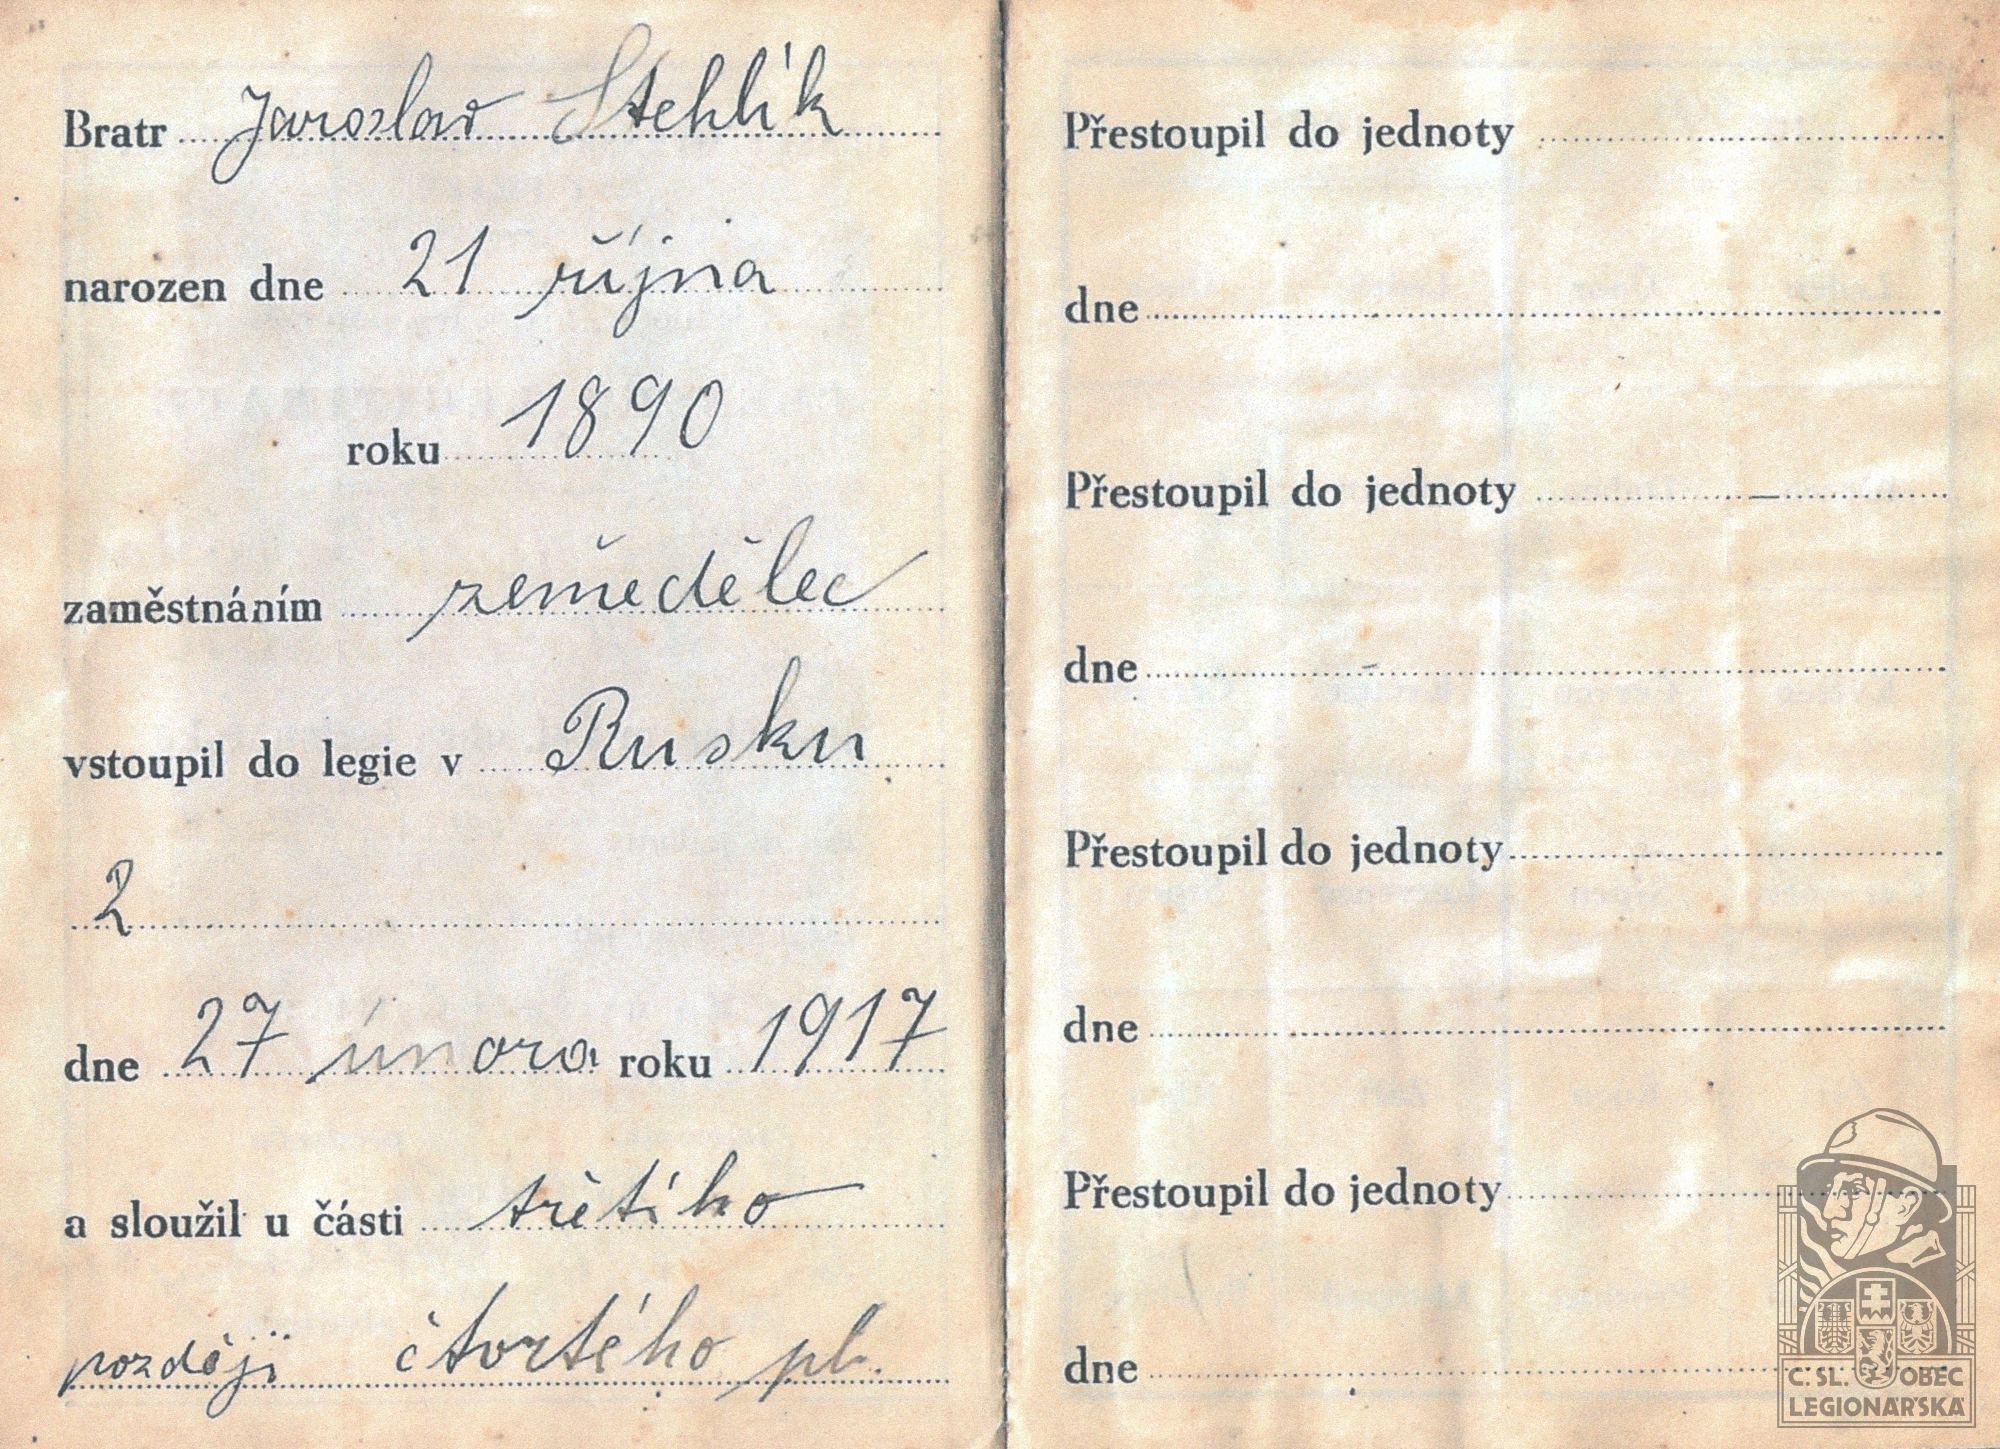 Bratr Jaroslav Stehlík
narozen dne 21 října
roku 1890
zaměstnáním zemědělec
vstoupil do legie v Rusku
2
dne 27 února roku 1917
a sloužil u části třetího
později čtvrtého pl.
Přestoupil do jednoty
dne
Přestoupil do jednoty
dne
Přestoupil do jednoty
dne
Přestoupil do jednoty
dne
Č. SL. OBEC
LEGIONÁŘSKÁ